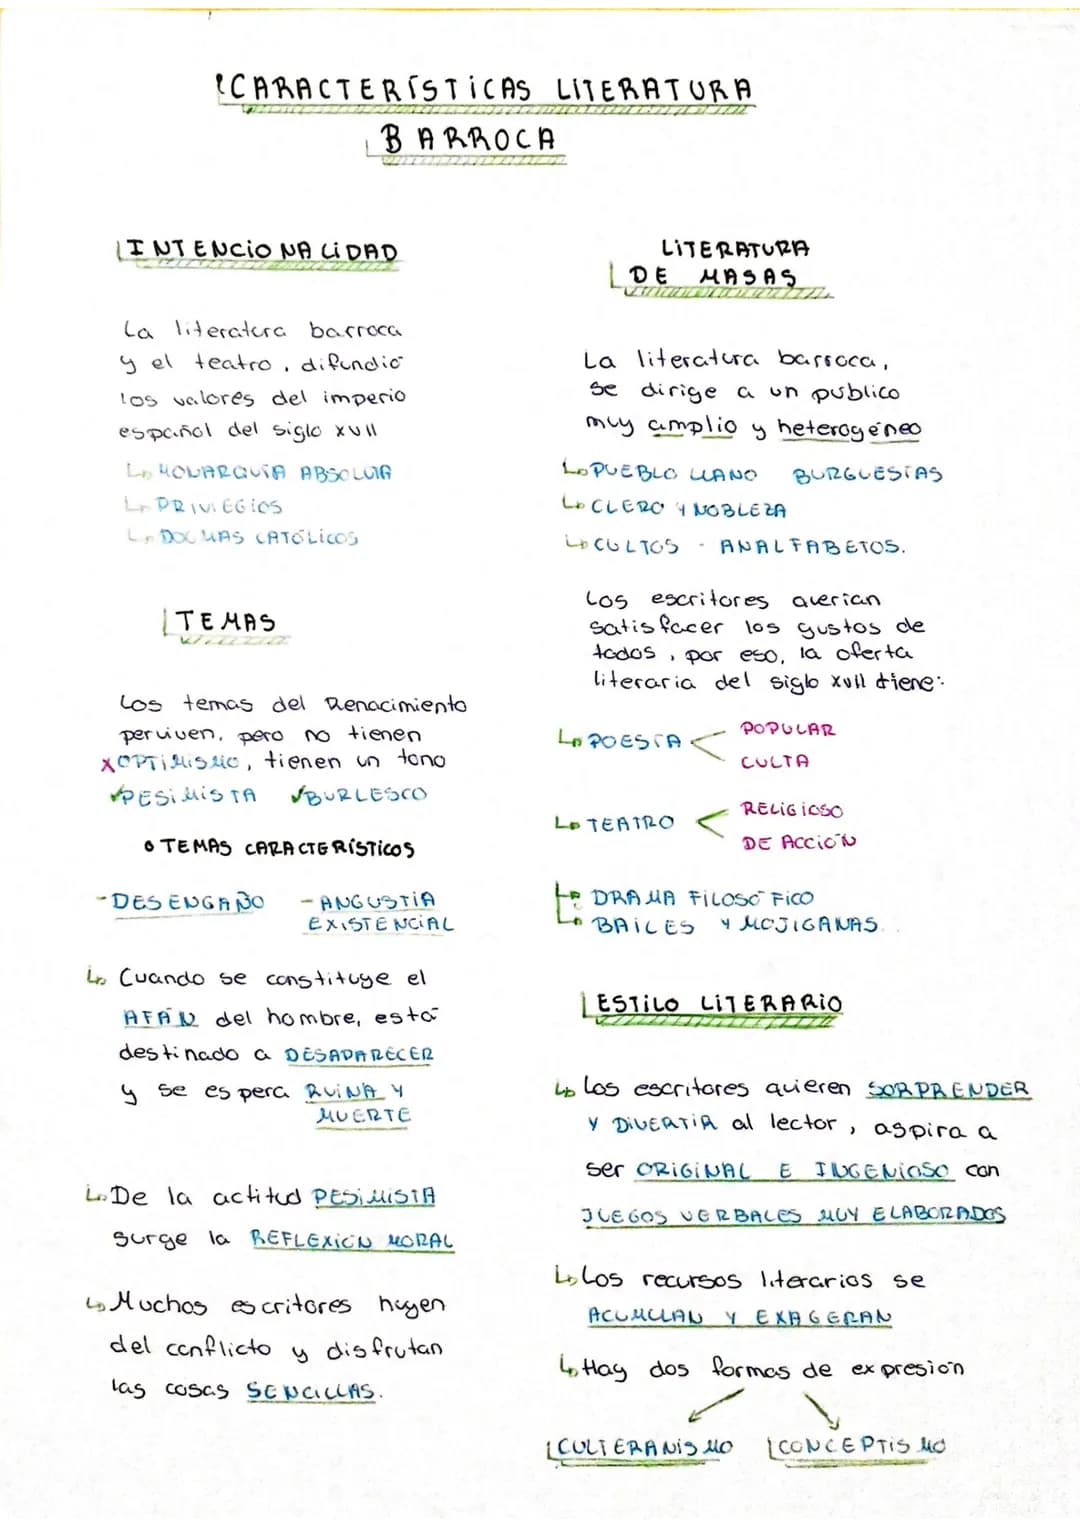 CARACTERÍSTICAS LITERATURA
BARROCA
INTENCIONALIDAD
La literatura barroca
y el teatro, difundió
los valores del imperio
español del siglo XVII
MONARQUÍA ABSOLUTA
PRIVIEGIOS
DOGMAS CATÓLICOS
TEMAS
Los temas del Renacimiento
perviven, pero no tienen
X OPTIMISMO, tienen un tono
✓PESIMISTA ✓BURLESCO
• TEMAS CARACTERÍSTICOS
- DESENGAÑO - ANGUSTIA
EXISTENCIAL
↳ Cuando se constituye el
AFÁN del hombre, está
destinado a DESAPARECER
y se espera RUINA Y
MUERTE
↳ De la actitud PESIMISTA
surge la REFLEXIÓN MORAL
↳ Muchos escritores huyen
del conflicto y disfrutan
las cosas SENCILLAS.
LITERATURA
DE MASAS
La literatura barroca,
se dirige a un público
muy amplio y heterogéneo
↳ PUEBLO LLANO BURGUESÍAS
↳ CLERO Y NOBLEZA
↳ CULTOS - ANALFABETOS.
Los escritores querían
satisfacer los gustos de
todos, por eso, la oferta
literaria del siglo XVII tiene:
↳ POESÍA < POPULAR
CULTA
↳ TEATRO < RELIGIOSO
DE ACCIÓN
↳ DRAMA FILOSÓFICO
↳ BAILES Y MOJIGANAS..
ESTILO LITERARIO
↳ Los escritores quieren SORPRENDER
Y DIVERTIR al lector, aspira a
ser ORIGINAL E INGENIOSO con
JUEGOS VERBALES MUY ELABORADOS
↳ Los recursos literarios se
ACUMULAN Y EXAGERAN
↳ Hay dos formas de expresión
CULTERANISMO CONCEPTISMO